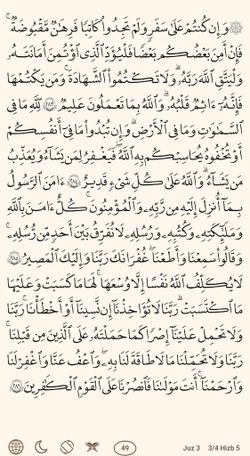 ۞ وَإِن كُنتُمْ عَلَىٰ سَفَرٍ وَلَمْ تَجِدُوا۟ كَاتِبًا فَرِهَـٰنٌ مَّقْبُوضَةٌ ۖ
فَإِنْ أَمِنَ بَعْضُكُم بَعْضًا فَلْيُؤَدِّ ٱلَّذِى ٱؤْتُمِنَ أَمَـٰنَتَهُۥ
وَلْيَتَّقِ ٱللَّهَ رَبَّهُۥ ۗ وَلَا تَكْتُمُوا۟ ٱلشَّهَـٰدَةَ ۚ وَمَن يَكْتُمْهَا
فَإِنَّهُۥٓ ءَاثِمٌ قَلْبُهُۥ ۗ وَٱللَّهُ بِمَا تَعْمَلُونَ عَلِيمٌ ٢٨٣ لِّلَّهِ مَا فِى
ٱلسَّمَـٰوَٰتِ وَمَا فِى ٱلْأَرْضِ ۗ وَإِن تُبْدُوا۟ مَا فِىٓ أَنفُسِكُمْ
أَوْ تُخْفُوهُ يُحَاسِبْكُم بِهِ ٱللَّهُ ۖ فَيَغْفِرُ لِمَن يَشَآءُ وَيُعَذِّبُ
مَن يَشَآءُ ۗ وَٱللَّهُ عَلَىٰ كُلِّ شَىْءٍ قَدِيرٌ ٢٨٤ ءَامَنَ ٱلرَّسُولُ
بِمَآ أُنزِلَ إِلَيْهِ مِن رَّبِّهِۦ وَٱلْمُؤْمِنُونَ ۚ كُلٌّ ءَامَنَ بِٱللَّهِ
وَمَلَـٰٓئِكَتِهِۦ وَكُتُبِهِۦ وَرُسُلِهِۦ لَا نُفَرِّقُ بَيْنَ أَحَدٍ مِّن رُّسُلِهِۦ ۚ
وَقَالُوا۟ سَمِعْنَا وَأَطَعْنَا ۖ غُفْرَانَكَ رَبَّنَا وَإِلَيْكَ ٱلْمَصِيرُ ٢٨٥
لَا يُكَلِّفُ ٱللَّهُ نَفْسًا إِلَّا وُسْعَهَا ۚ لَهَا مَا كَسَبَتْ وَعَلَيْهَا
مَا ٱكْتَسَبَتْ ۗ رَبَّنَا لَا تُؤَاخِذْنَآ إِن نَّسِينَآ أَوْ أَخْطَأْنَا ۚ رَبَّنَا
وَلَا تَحْمِلْ عَلَيْنَآ إِصْرًا كَمَا حَمَلْتَهُۥ عَلَى ٱلَّذِينَ مِن قَبْلِنَا ۚ
رَبَّنَا وَلَا تُحَمِّلْنَا مَا لَا طَاقَةَ لَنَا بِهِۦ ۖ وَٱعْفُ عَنَّا وَٱغْفِرْ لَنَا
وَٱرْحَمْنَآ ۚ أَنتَ مَوْلَىٰنَا فَٱنصُرْنَا عَلَى ٱلْقَوْمِ ٱلْكَـٰفِرِينَ ٢٨٦
49 Juz 3 3/4 Hizb 5